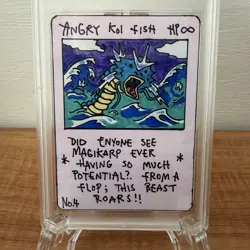 ANGRY KOI FISH HP∞
DID ENYONE SEE
MAGIKARP EVER
* HAVING SO MUCH *
POTENTIAL?. FROM A
FLOP; THIS BEAST
ROARS!!
No.4